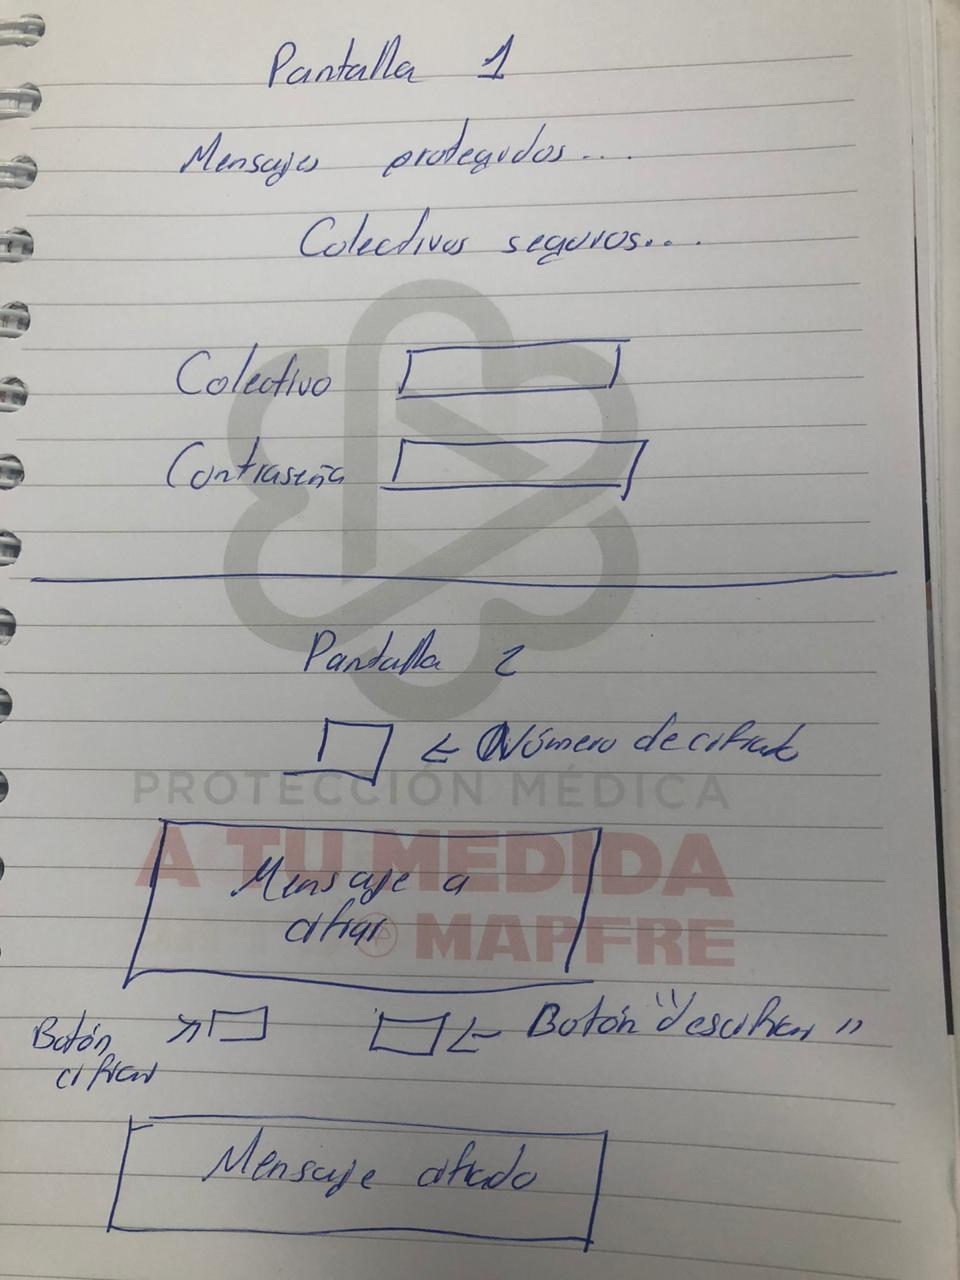 Pantalla 1
Mensajes protegidos...
Colectivos seguros...
Colectivo
Contraseña
Pantalla 2
← Número de cifrado
PROTECCIÓN MÉDICA
A TU MEDIDA
MAPFRE
Mensaje a
cifrar
Botón
cifrar
← Botón "descifrar"
Mensaje cifrado